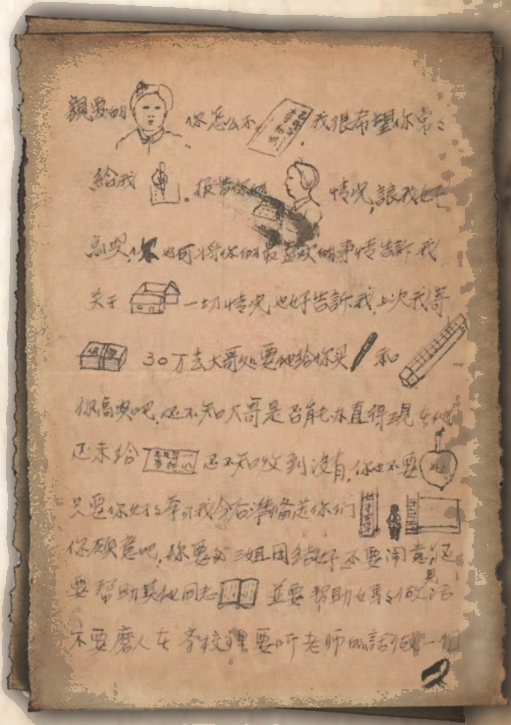 親愛的 你怎么不 我很希望你常々
給我 報告你的 情况,讓我好
高興,你也可將你的最喜欢的事情告訴我
关于 一切情况也好告訴我,上次我寄
30万去大哥处要他给你买 和
你高興吧,还不知大哥是否能办直得現在他
还未给 还不知收到没有,你也不要
只要你好好 我今后準備送你们
你願意吧,你要和三姐团结好不要闹意見还
要帮助其他同志 並要帮助好
不要磨人在 学校裡要听老师的話 一個